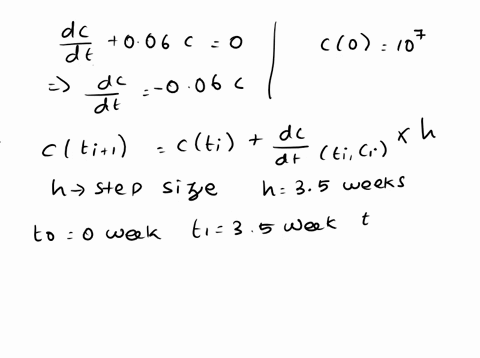 dc/dt + 0.06 c = 0 | c(0) = 10^7
=> dc/dt = -0.06 c
c(ti+1) = c(ti) + dc/dt (ti, ci) × h
h → step size h = 3.5 weeks
t0 = 0 week t1 = 3.5 week t